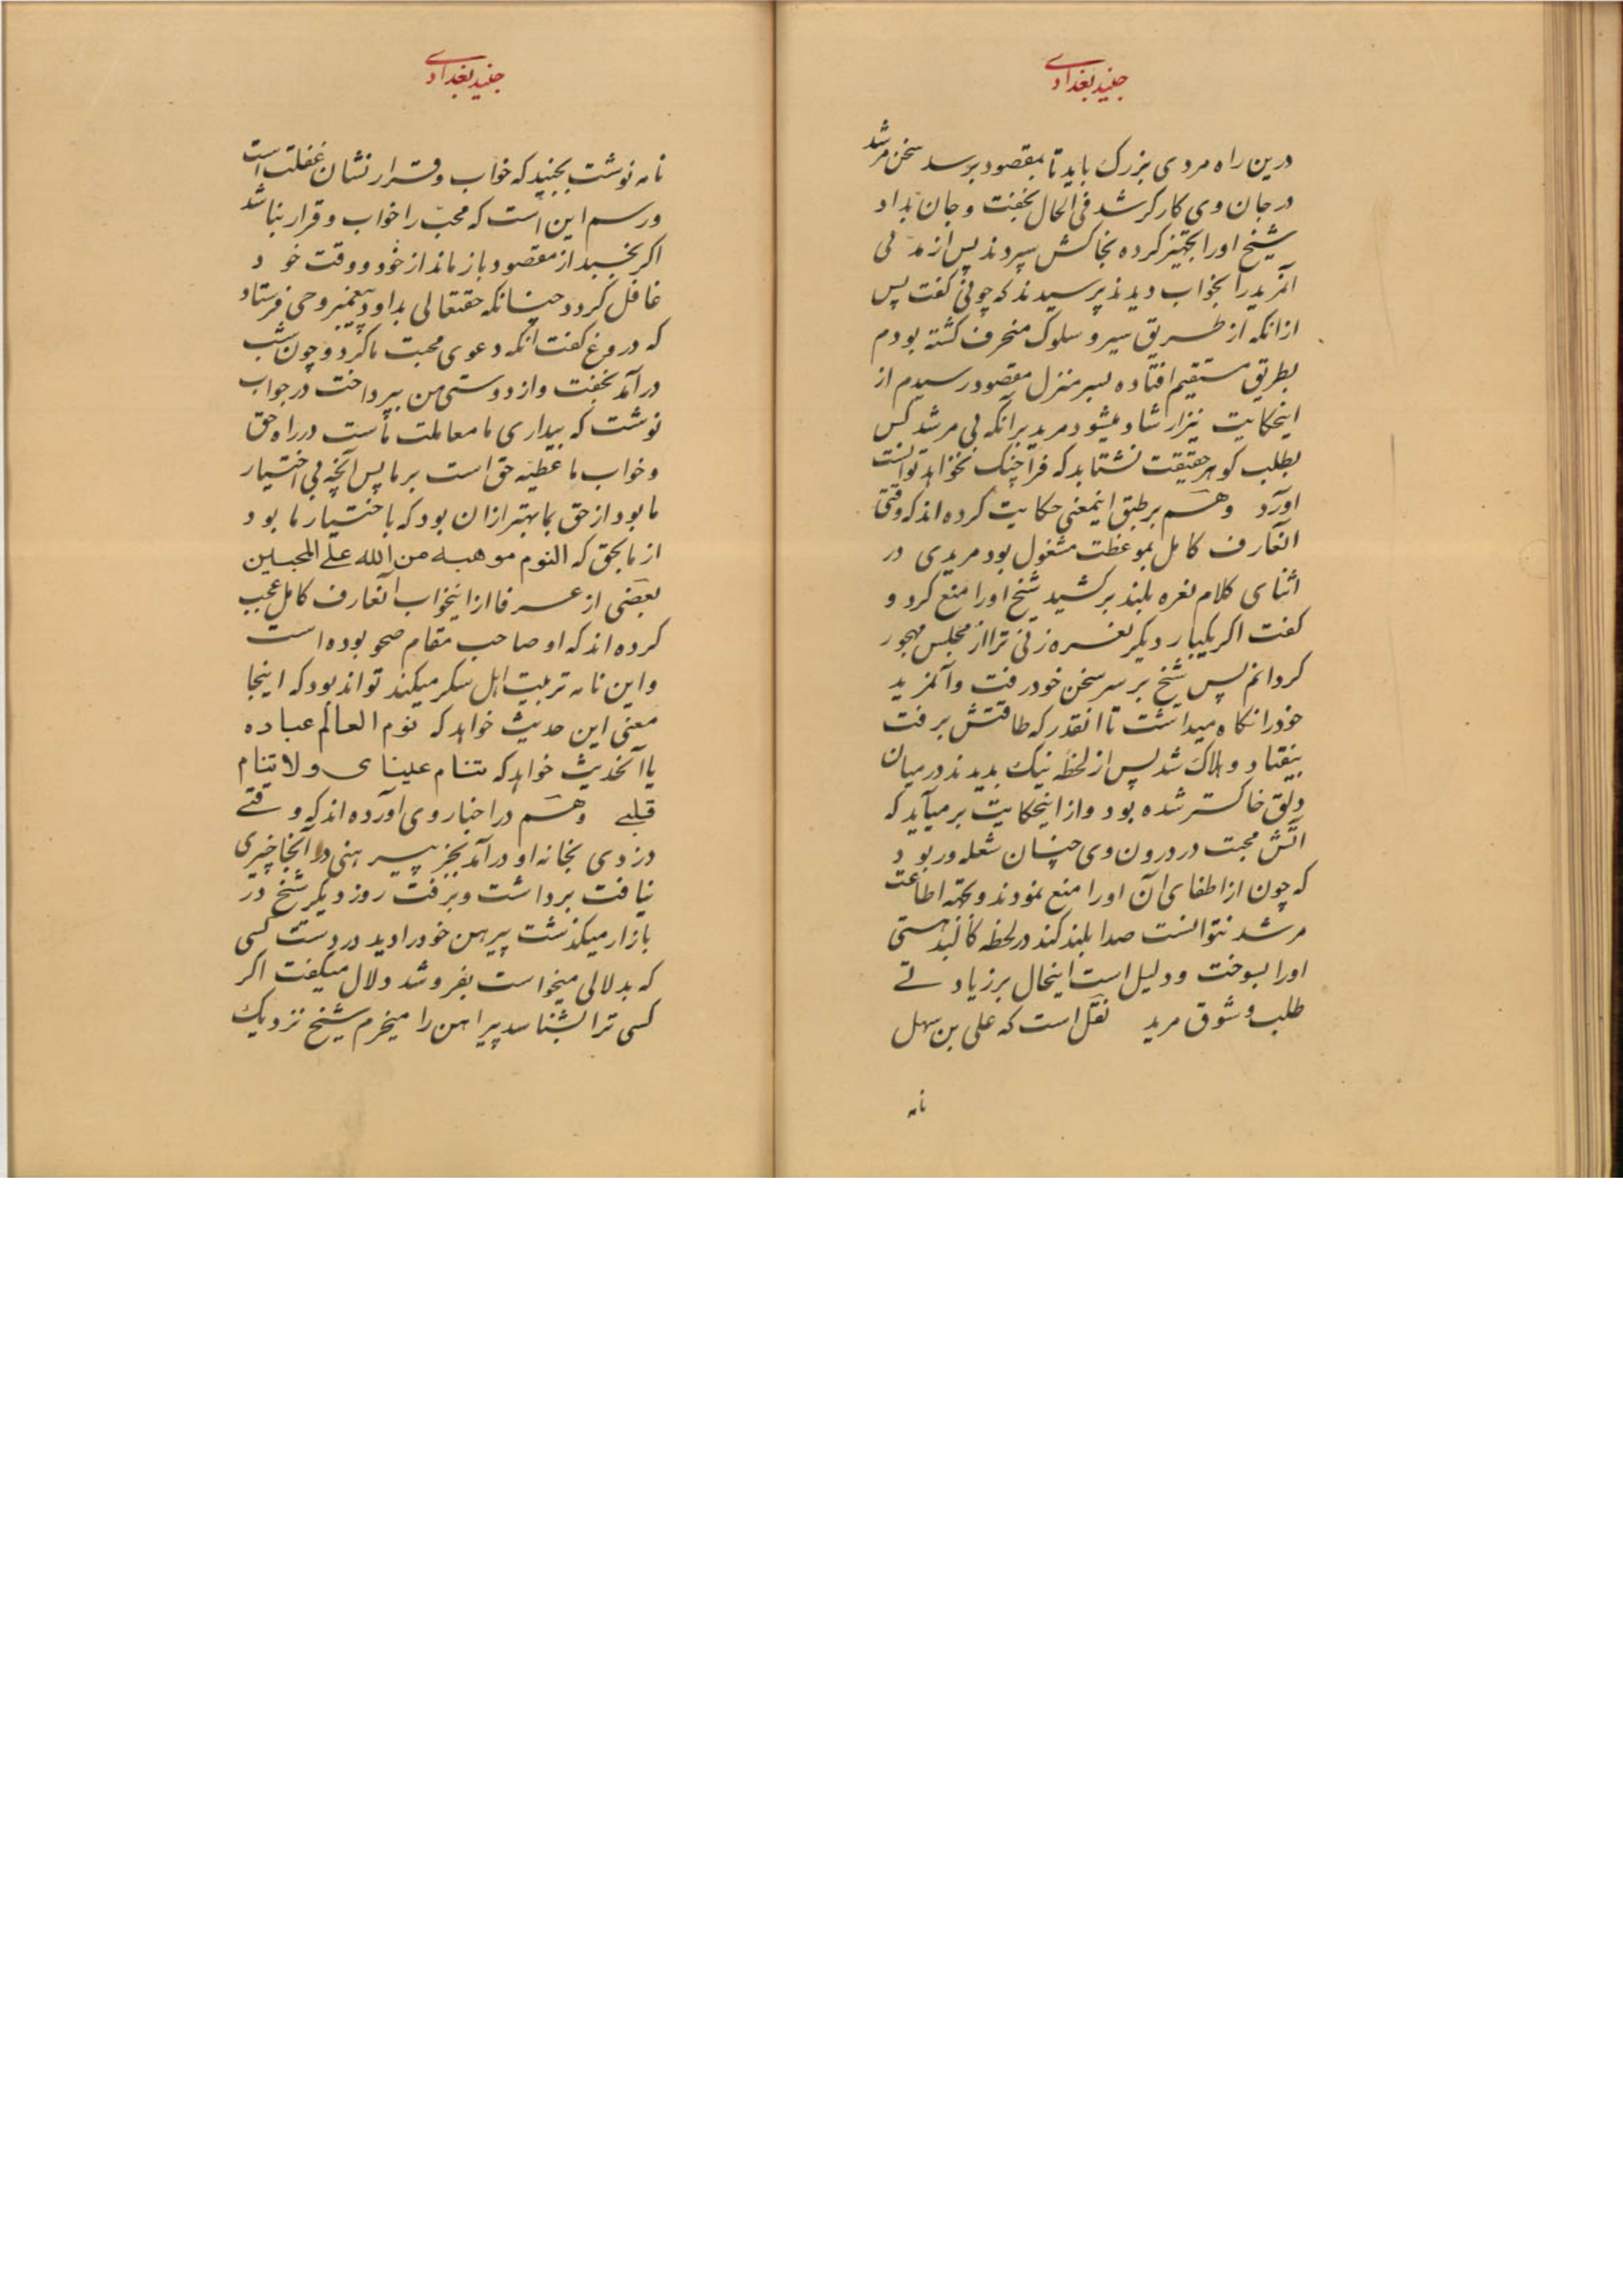 جنید بغدادی
درین راه مردی بزرک باید تا بمقصود برسد سخن مرشد
در جان وی کارکر شد فی الحال بخفت و جان بداد
شیخ اورا تجهیز کرده بخاکش سپردند پس از مدتی
آنمرید را بخواب دیدند پرسیدند که چونی کفت پس
ازانکه از طریق سیر و سلوک منحرف کشته بودم
بطریق مستقیم افتاده بسر منزل مقصود رسیدم از
اینحکایت نیز ارشاد میشود مرید برآنکه بی مرشد کس
بطلب کوهر حقیقت نشتابد که فراچنک نخواهد توانست
اورد وهم بر طبق اینمعنی حکایت کرده اند که وقتی
انعارف کامل بموعظت مشغول بود مریدی در
اثنای کلام نعره بلند برکشید شیخ اورا منع کرد و
کفت اکر یکبار دیکر نعره زنی ترا از مجلس مهجور
کردانم پس شیخ بر سر سخن خود رفت و آنمرید
خودرا نکاه میداشت تا انقدر که طاقتش برفت
بیفتاد و هلاک شد پس از لحظه نیک بدیدند در میان
دلق خاکستر شده بود و از اینحکایت برمیآید که
اتش محبت در درون وی چنان شعله ور بود
که چون از اطفای آن اورا منع نمودند و بحکم اطاعت
مرشد نتوانست صدا بلند کند در لحظه کالبد هستی
اورا بسوخت و دلیل است اینحال بر زیادتی
طلب و شوق مرید نقل است که علی بن سهل
نامه
جنید بغدادی
نامه نوشت بجنید که خواب و قرار نشان غفلت است
و رسم این است که محب را خواب و قرار نباشد
اکر بخسبد از مقصود باز ماند از خود و وقت خود
غافل کردد چنانکه حقتعالی بداود پیغمبر وحی فرستاد
که دروغ کفت آنکه دعوی محبت ما کرد و چون شب
درآمد بخفت و از دوستی من بپرداخت در جواب
نوشت که بیداری ما معاملت ماست در راه حق
و خواب ما عطیه حق است بر ما پس آنچه بی اختیار
ما بود از حق بما بهتر ازان بود که باختیار ما بود
از ما بحق که النوم موهبه من الله علی المحبین
بعضی از عرفا از اینخواب آنعارف کامل عجب
کرده اند که او صاحب مقام صحو بوده است
و این نامه تربیت اهل سکر میکند تواند بود که اینجا
معنی این حدیث خواهد که نوم العالم عباده
یا آنحدیث خواهد که تنام عینای ولا ینام
قلبی وهم در اخبار وی آورده اند که وقتی
دزدی بخانه او درآمد بجز پیرهنی در آنجا چیزی
نیافت برداشت و برفت روز دیکر شیخ در
بازار میکذشت پیرهن خودرا دید در دست کسی
که بدلالی میخواست بفروشد دلال میکفت اکر
کسی ترا بشناسد پیراهن را میخرم شیخ نزدیک